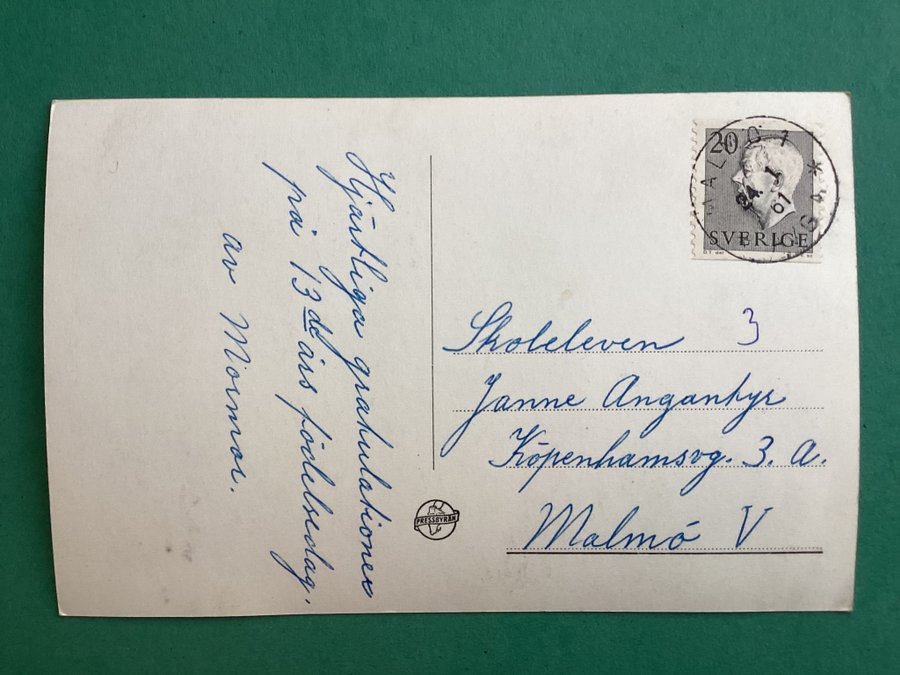 Hjärtliga gratulationer
på 13de års födelsedag.
av Mormor.
20
SVERIGE
MALMÖ 1
24. 1
61
Skoleleven 3
Janne Angantyr
Köpenhamsvg. 3. a.
Malmö V
PRESSBYRÅN